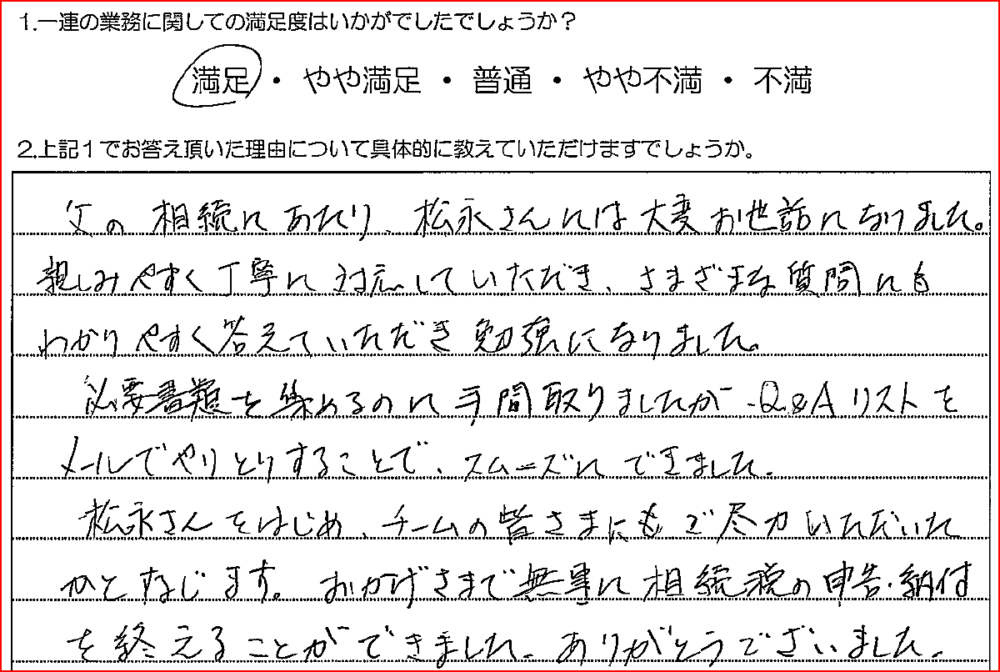 1.一連の業務に関しての満足度はいかがでしたでしょうか？
満足・やや満足・普通・やや不満・不満
2.上記１でお答え頂いた理由について具体的に教えていただけますでしょうか。
父の相続にあたり、松永さんには大変お世話になりました。
親しみやすく丁寧に対応していただき、さまざまな質問にも
わかりやすく答えていただき勉強になりました。
必要書類を集めるのに手間取りましたが、Q&Aリストを
メールでやりとりすることで、スムーズにできました。
松永さんをはじめ、チームの皆さまにもご尽力いただいた
かと存じます。おかげさまで無事に相続税の申告・納付
を終えることができました。ありがとうございました。